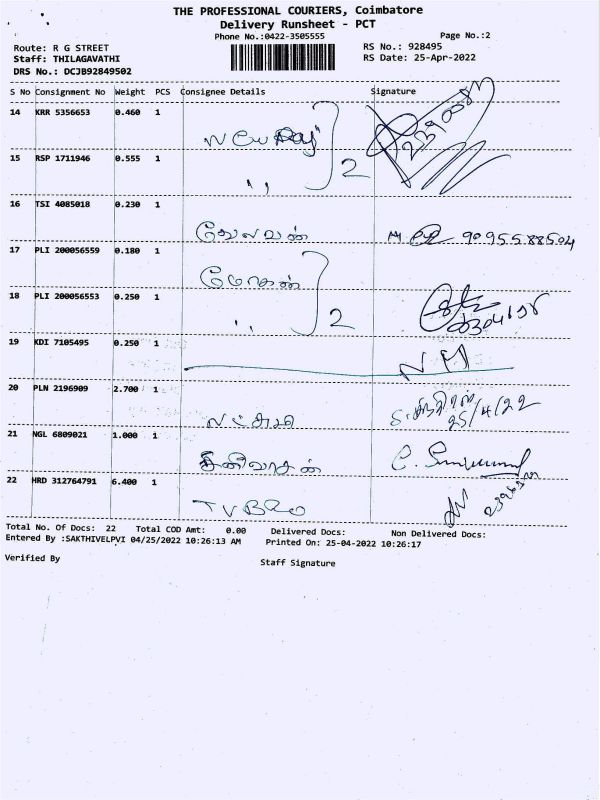 THE PROFESSIONAL COURIERS, Coimbatore
Delivery Runsheet - PCT
Phone No.:0422-3505555 Page No.:2
Route: R G STREET RS No.: 928495
Staff: THILAGAVATHI RS Date: 25-Apr-2022
DRS No.: DCJB92849502
S No Consignment No Weight PCS Consignee Details Signature
14 KRR 5356653 0.460 1
New Raj
15 RSP 1711946 0.555 1
,, 2
16 TSI 4085018 0.230 1
வேலவன் 9095588504
17 PLI 200056559 0.180 1
மோகன்
18 PLI 200056553 0.250 1
,, 2
19 KDI 7105495 0.250 1
NM
20 PLN 2196909 2.700 1
லட்சுமி 25/4/22
21 NGL 6809021 1.000 1
சீனிவாசன்
22 HRD 312764791 6.400 1
Total No. Of Docs: 22 Total COD Amt: 0.00 Delivered Docs: Non Delivered Docs:
Entered By :SAKTHIVELPVI 04/25/2022 10:26:13 AM Printed On: 25-04-2022 10:26:17
Verified By Staff Signature